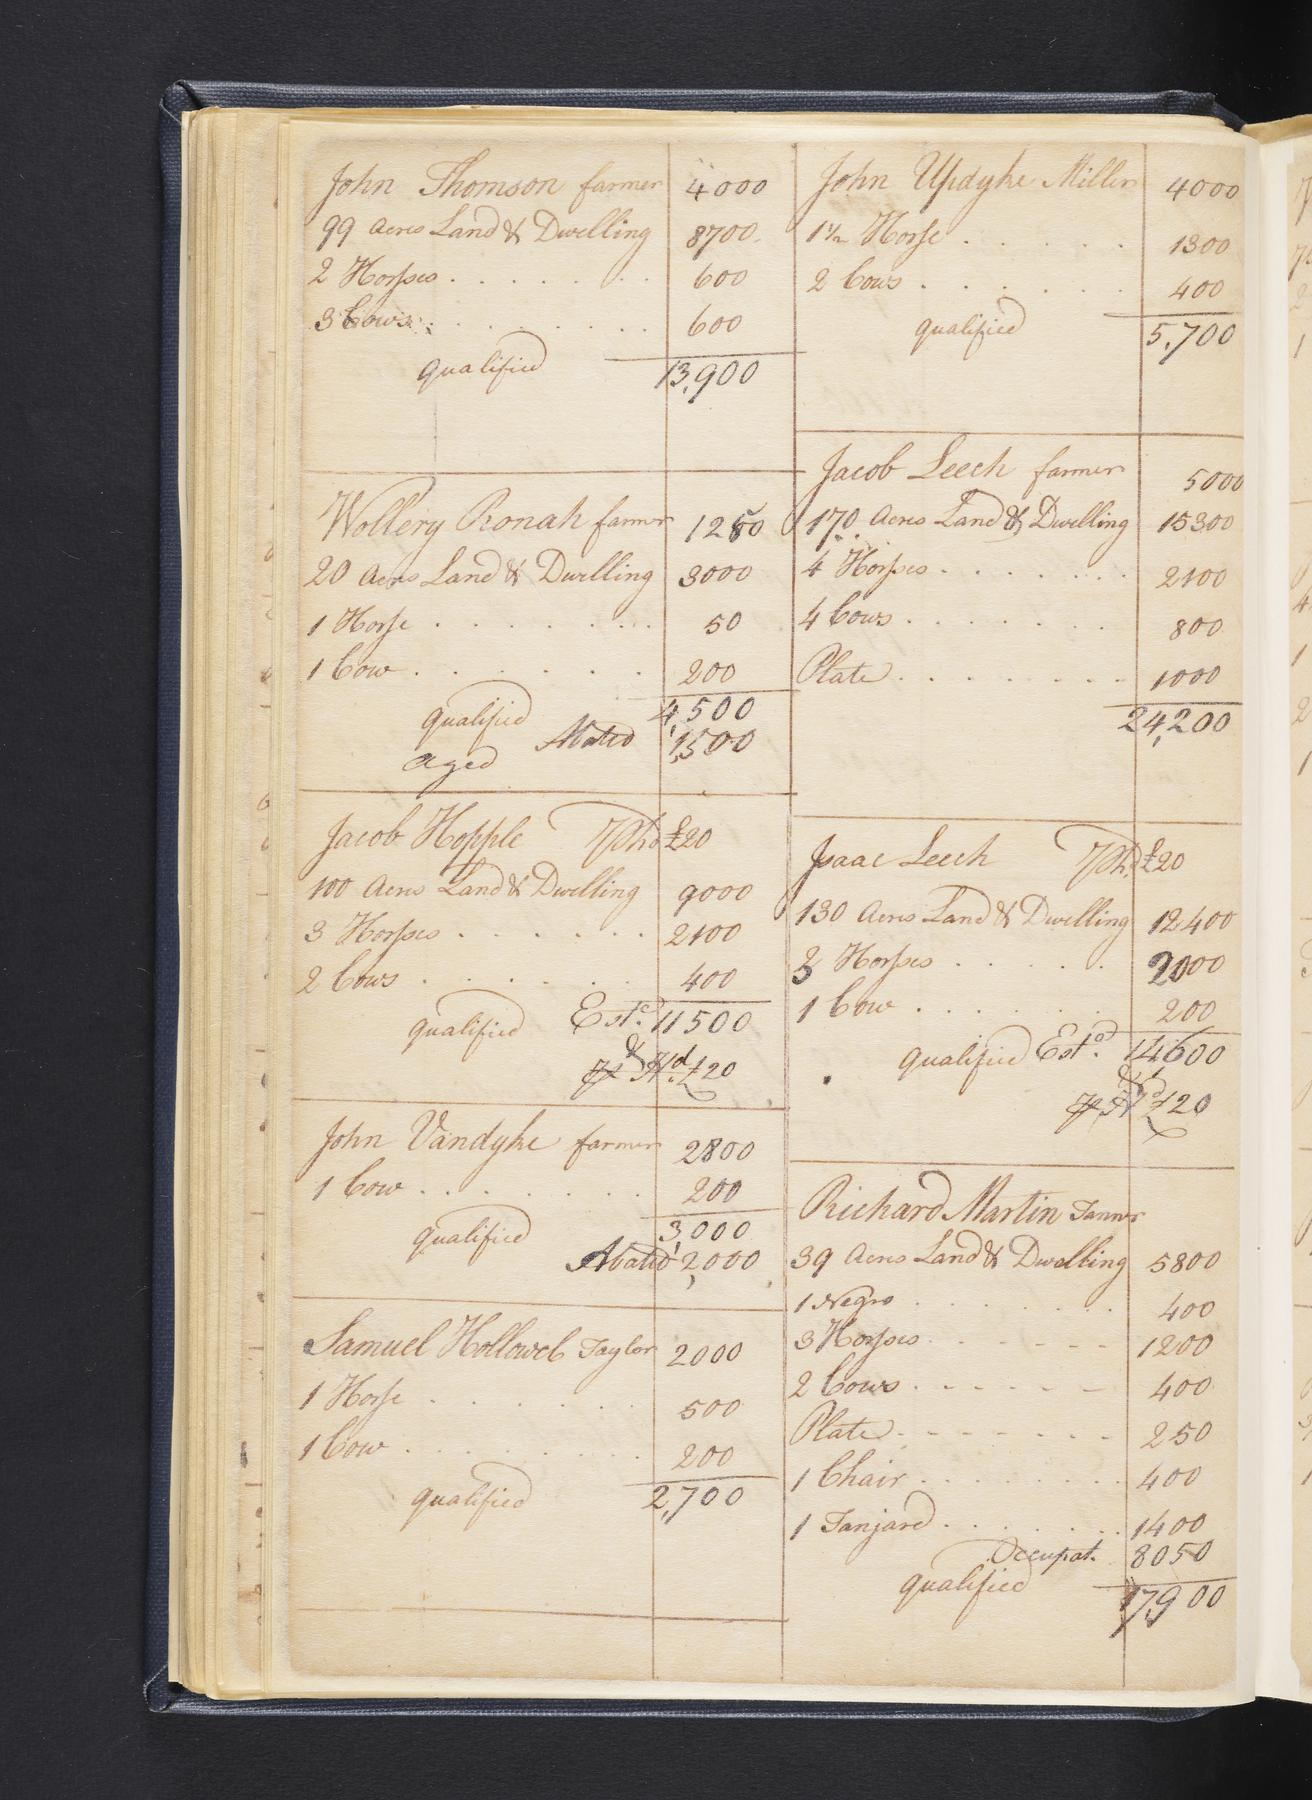 John Thomson farmer 4000
99 Acres Land & Dwelling 8700
2 Horses 600
3 Cows 600
qualified 13,900
Wollery Ronah farmer 1250
20 Acres Land & Dwelling 3000
1 Horse 50
1 Cow 200
qualified 4,500
aged Abated 1,500
Jacob Hopple £20
100 Acres Land & Dwelling 9000
3 Horses 2100
2 Cows 400
qualified Estd. 11500
& Hd. £20
John Vandyke farmer 2800
1 Cow 200
qualified 3,000
Abated 2,000
Samuel Hollowel Taylor 2000
1 Horse 500
1 Cow 200
qualified 2,700
John Updyke Miller 4000
1 1/2 Horse 1300
2 Cows 400
qualified 5,700
Jacob Leech farmer 5000
170 Acres Land & Dwelling 15300
4 Horses 2100
4 Cows 800
Plate 1000
24,200
Isaac Leech £20
130 Acres Land & Dwelling 12400
3 Horses 2000
1 Cow 200
qualified Estd. 14600
& Hd. £20
Richard Martin Tanner
39 Acres Land & Dwelling 5800
1 Negro 400
3 Horses 1200
2 Cows 400
Plate 250
1 Chair 400
1 Tanjard 1400
Occupat. 8050
qualified 17,900